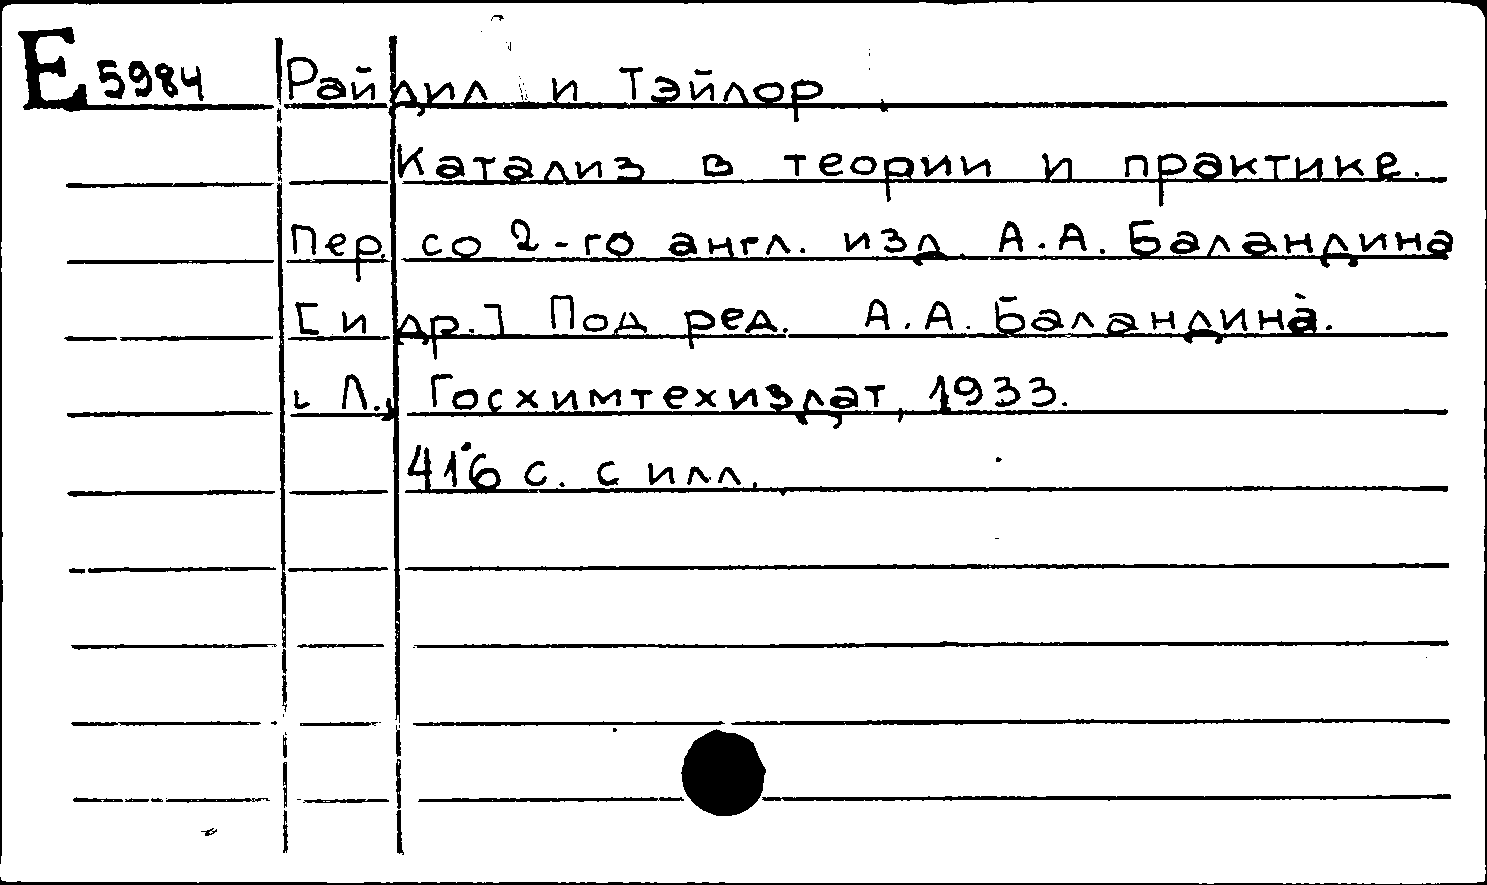 E 5984 Райдил и Тэйлор
Катализ в теории и практике.
Пер. со 2-го англ. изд. А.А. Баландина
[и др.] Под ред. А.А. Баландина.
Л., Госхимтехиздат, 1933.
416 с. с илл.